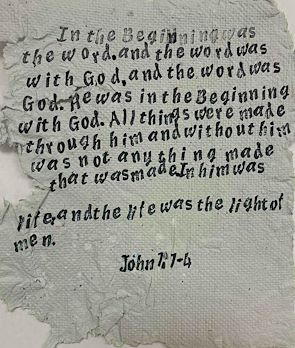 In the Beginning was
the word. and the word was
with God, and the word was
God. He was in the Beginning
with God. All things were made
through him and without him
was not any thing made
that was made. In him was
life, and the life was the light of
men.
John 1:1-4